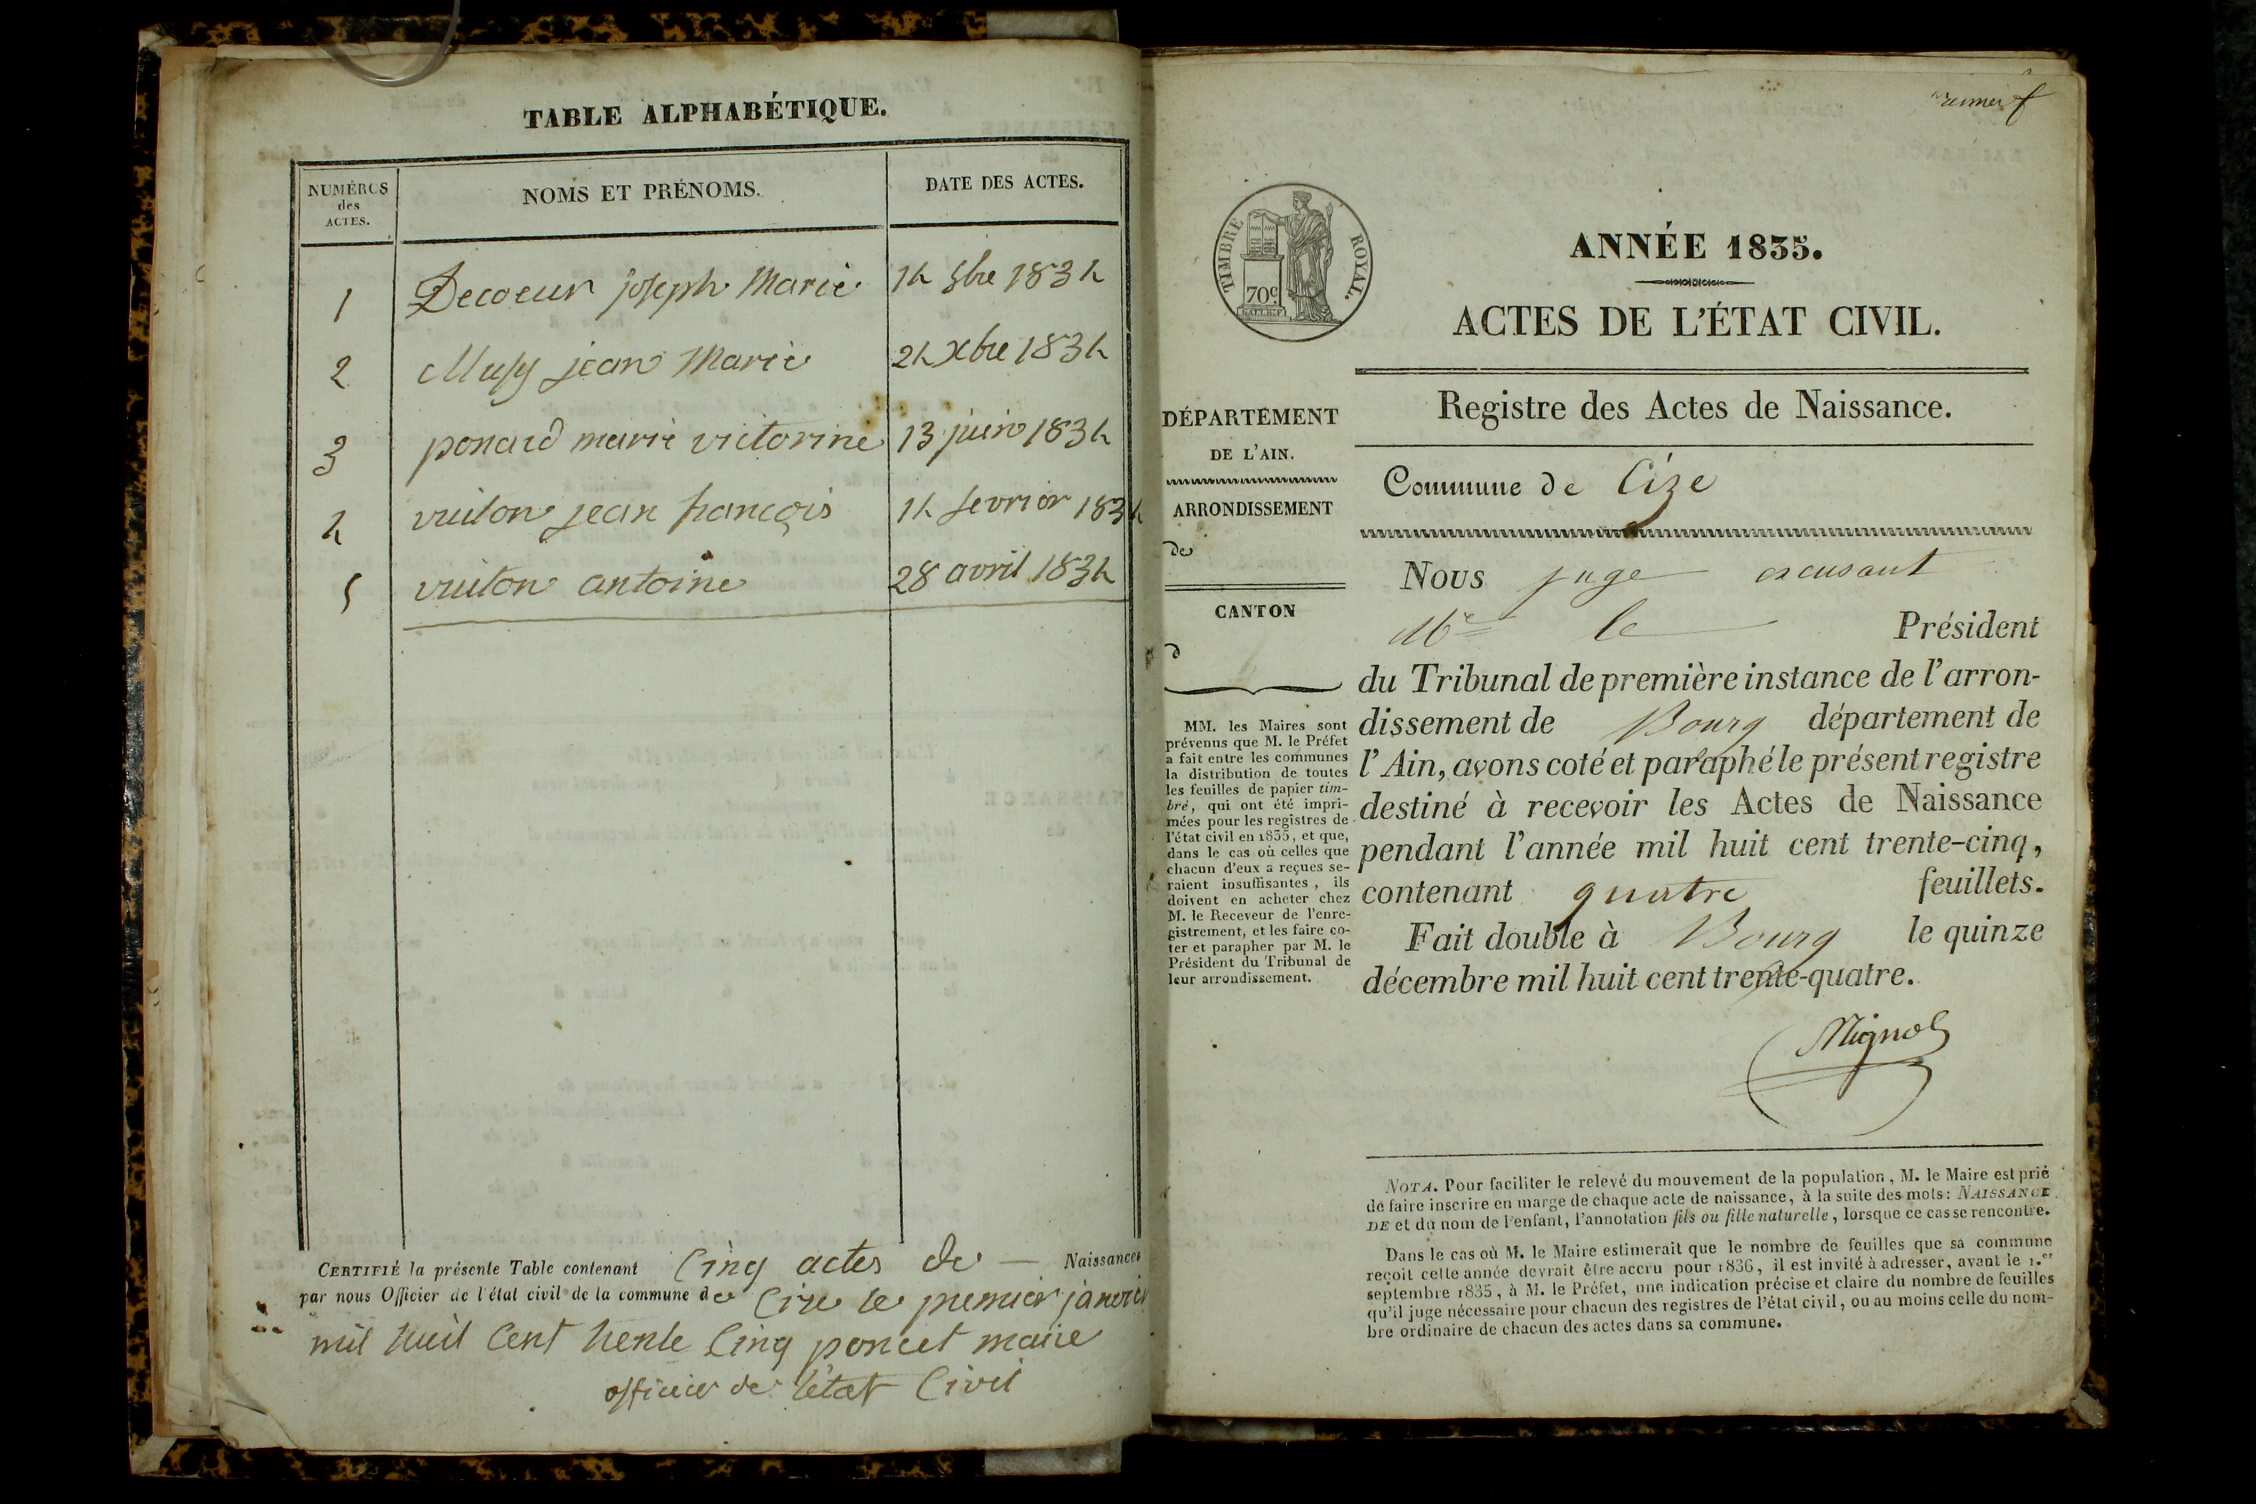 TABLE ALPHABÉTIQUE.
NUMÉROS des ACTES.
NOMS ET PRÉNOMS.
DATE DES ACTES.
1 Decoeur joseph Marie 14 9bre 1834
2 Musy jean Marie 24 xbre 1834
3 ponard marie victorine 13 juin 1834
4 vuiton jean francois 14 fevrier 1834
5 vuiton antoine 28 avril 1834
CERTIFIÉ la présente Table contenant Cinq actes de — Naissances
par nous Officier de l'état civil de la commune de Cize le premier janvier
mil huit Cent trente Cinq poncet maire
officier de l'état Civil
premier f
TIMBRE ROYAL.
70c
ANNÉE 1835.
ACTES DE L'ÉTAT CIVIL.
Registre des Actes de Naissance.
DÉPARTEMENT
DE L'AIN.
ARRONDISSEMENT
de
CANTON
d
MM. les Maires sont
prévenus que M. le Préfet
a fait entre les communes
la distribution de toutes
les feuilles de papier tim-
bré, qui ont été impri-
mées pour les registres de
l'état civil en 1835, et que,
dans le cas où celles que
chacun d'eux a reçues se-
raient insuffisantes, ils
doivent en acheter chez
M. le Receveur de l'enre-
gistrement, et les faire co-
ter et parapher par M. le
Président du Tribunal de
leur arrondissement.
Commune de Cize
Nous juge excusant
Mr le Président
du Tribunal de première instance de l'arron-
dissement de Bourg département de
l'Ain, avons coté et paraphé le présent registre
destiné à recevoir les Actes de Naissance
pendant l'année mil huit cent trente-cinq,
contenant quatre feuillets.
Fait double à Bourg le quinze
décembre mil huit cent trente-quatre.
NOTA. Pour faciliter le relevé du mouvement de la population, M. le Maire est prié
de faire inscrire en marge de chaque acte de naissance, à la suite des mots: NAISSANCE
DE et du nom de l'enfant, l'annotation fils ou fille naturelle, lorsque ce cas se rencontre.
Dans le cas où M. le Maire estimerait que le nombre de feuilles que sa commune
reçoit cette année devrait être accru pour 1836, il est invité à adresser, avant le 1.er
septembre 1835, à M. le Préfet, une indication précise et claire du nombre de feuilles
qu'il juge nécessaire pour chacun des registres de l'état civil, ou au moins celle du nom-
bre ordinaire de chacun des actes dans sa commune.